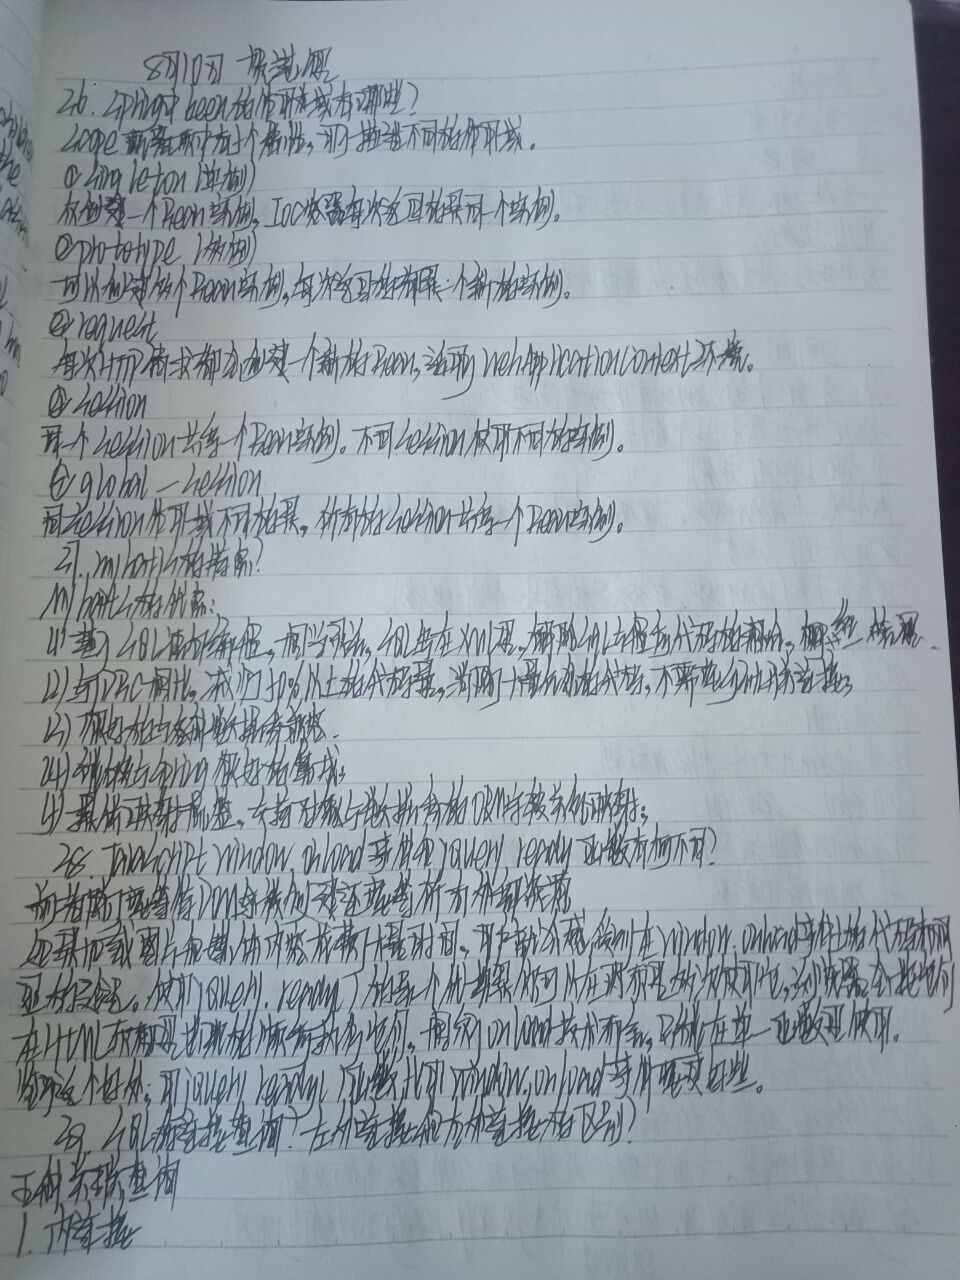 8月10日
26. Spring中bean的作用域有哪些?
Scope 中有一个属性,用于描述不同的作用域。
① singleton (单例)
仅创建一个Bean实例,IOC容器每次返回的是同一个实例。
② prototype (多例)
可以创建多个Bean实例,每次返回的都是一个新的实例。
③ request
每次HTTP请求都会创建一个新的Bean,适用于WebApplicationContext环境。
④ session
同一个session共享一个Bean实例。不同session使用不同的实例。
⑤ global-session
同session作用域不同的是,所有的session共享一个Bean实例。
27. mybatis的特点?
Mybatis的优点:
(1) 基于SQL语句编程,相当灵活,SQL写在XML里,解除SQL与程序代码的耦合,
(2) 与JDBC相比,减少了50%以上的代码量,消除了大量冗余的代码,不需要手动开关连接;
(3) 很好的与各种数据库兼容.
(4) 能够与Spring很好的集成;
(5) 提供映射标签,支持对象与数据库的ORM字段关系映射;
28. JavaScript window.onload事件和jquery ready函数有何不同?
前者除了要等待DOM被创建还要等所有外部资源
如果加载图片和媒体内容花费了大量时间,用户就会感受到在window.onload事件上的代码有明
显的延迟。使用jquery.ready()的另一个优势是你可以在网页里多次使用它,浏览器会按它们
在HTML页面里出现的顺序执行它们,相反onload技术而言,只能在单一函数里使用。
这个好处,用jquery ready()函数比用window.onload事件要更好些。
29. SQL的连接查询?左外连接和右外连接的区别?
五种关联查询
1. 内连接